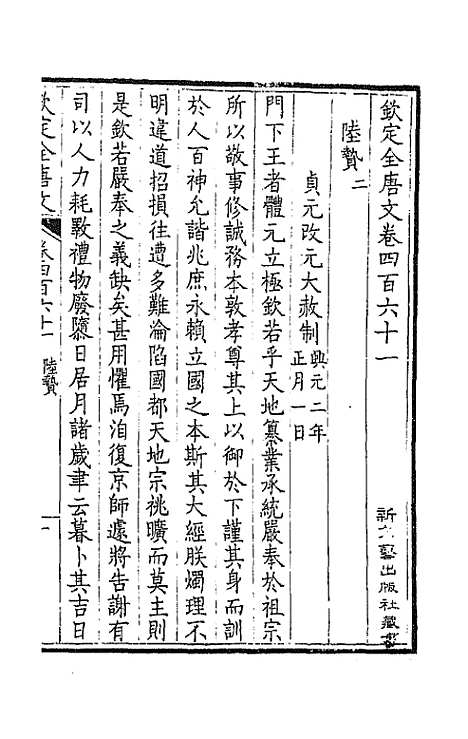 欽定全唐文卷四百六十一
陸贄二
貞元改元大赦制興元二年正月一日
門下王者體元立極欽若乎天地纂業承統嚴奉於祖宗
所以敬事修誠務本敦孝尊其上以御於下謹其身而訓
於人百神允諧兆庶永賴立國之本斯其大經朕燭理不
明違道招損往遭多難淪陷國都天地宗祧曠而莫主則
是欽若嚴奉之義缺矣甚用懼焉洎復京師遽將告謝有
司以人力耗斁禮物廢隳日居月諸歲聿云暮卜其吉日
欽定全唐文
卷四百六十一
陸贄
一
新文藝出版社藏書